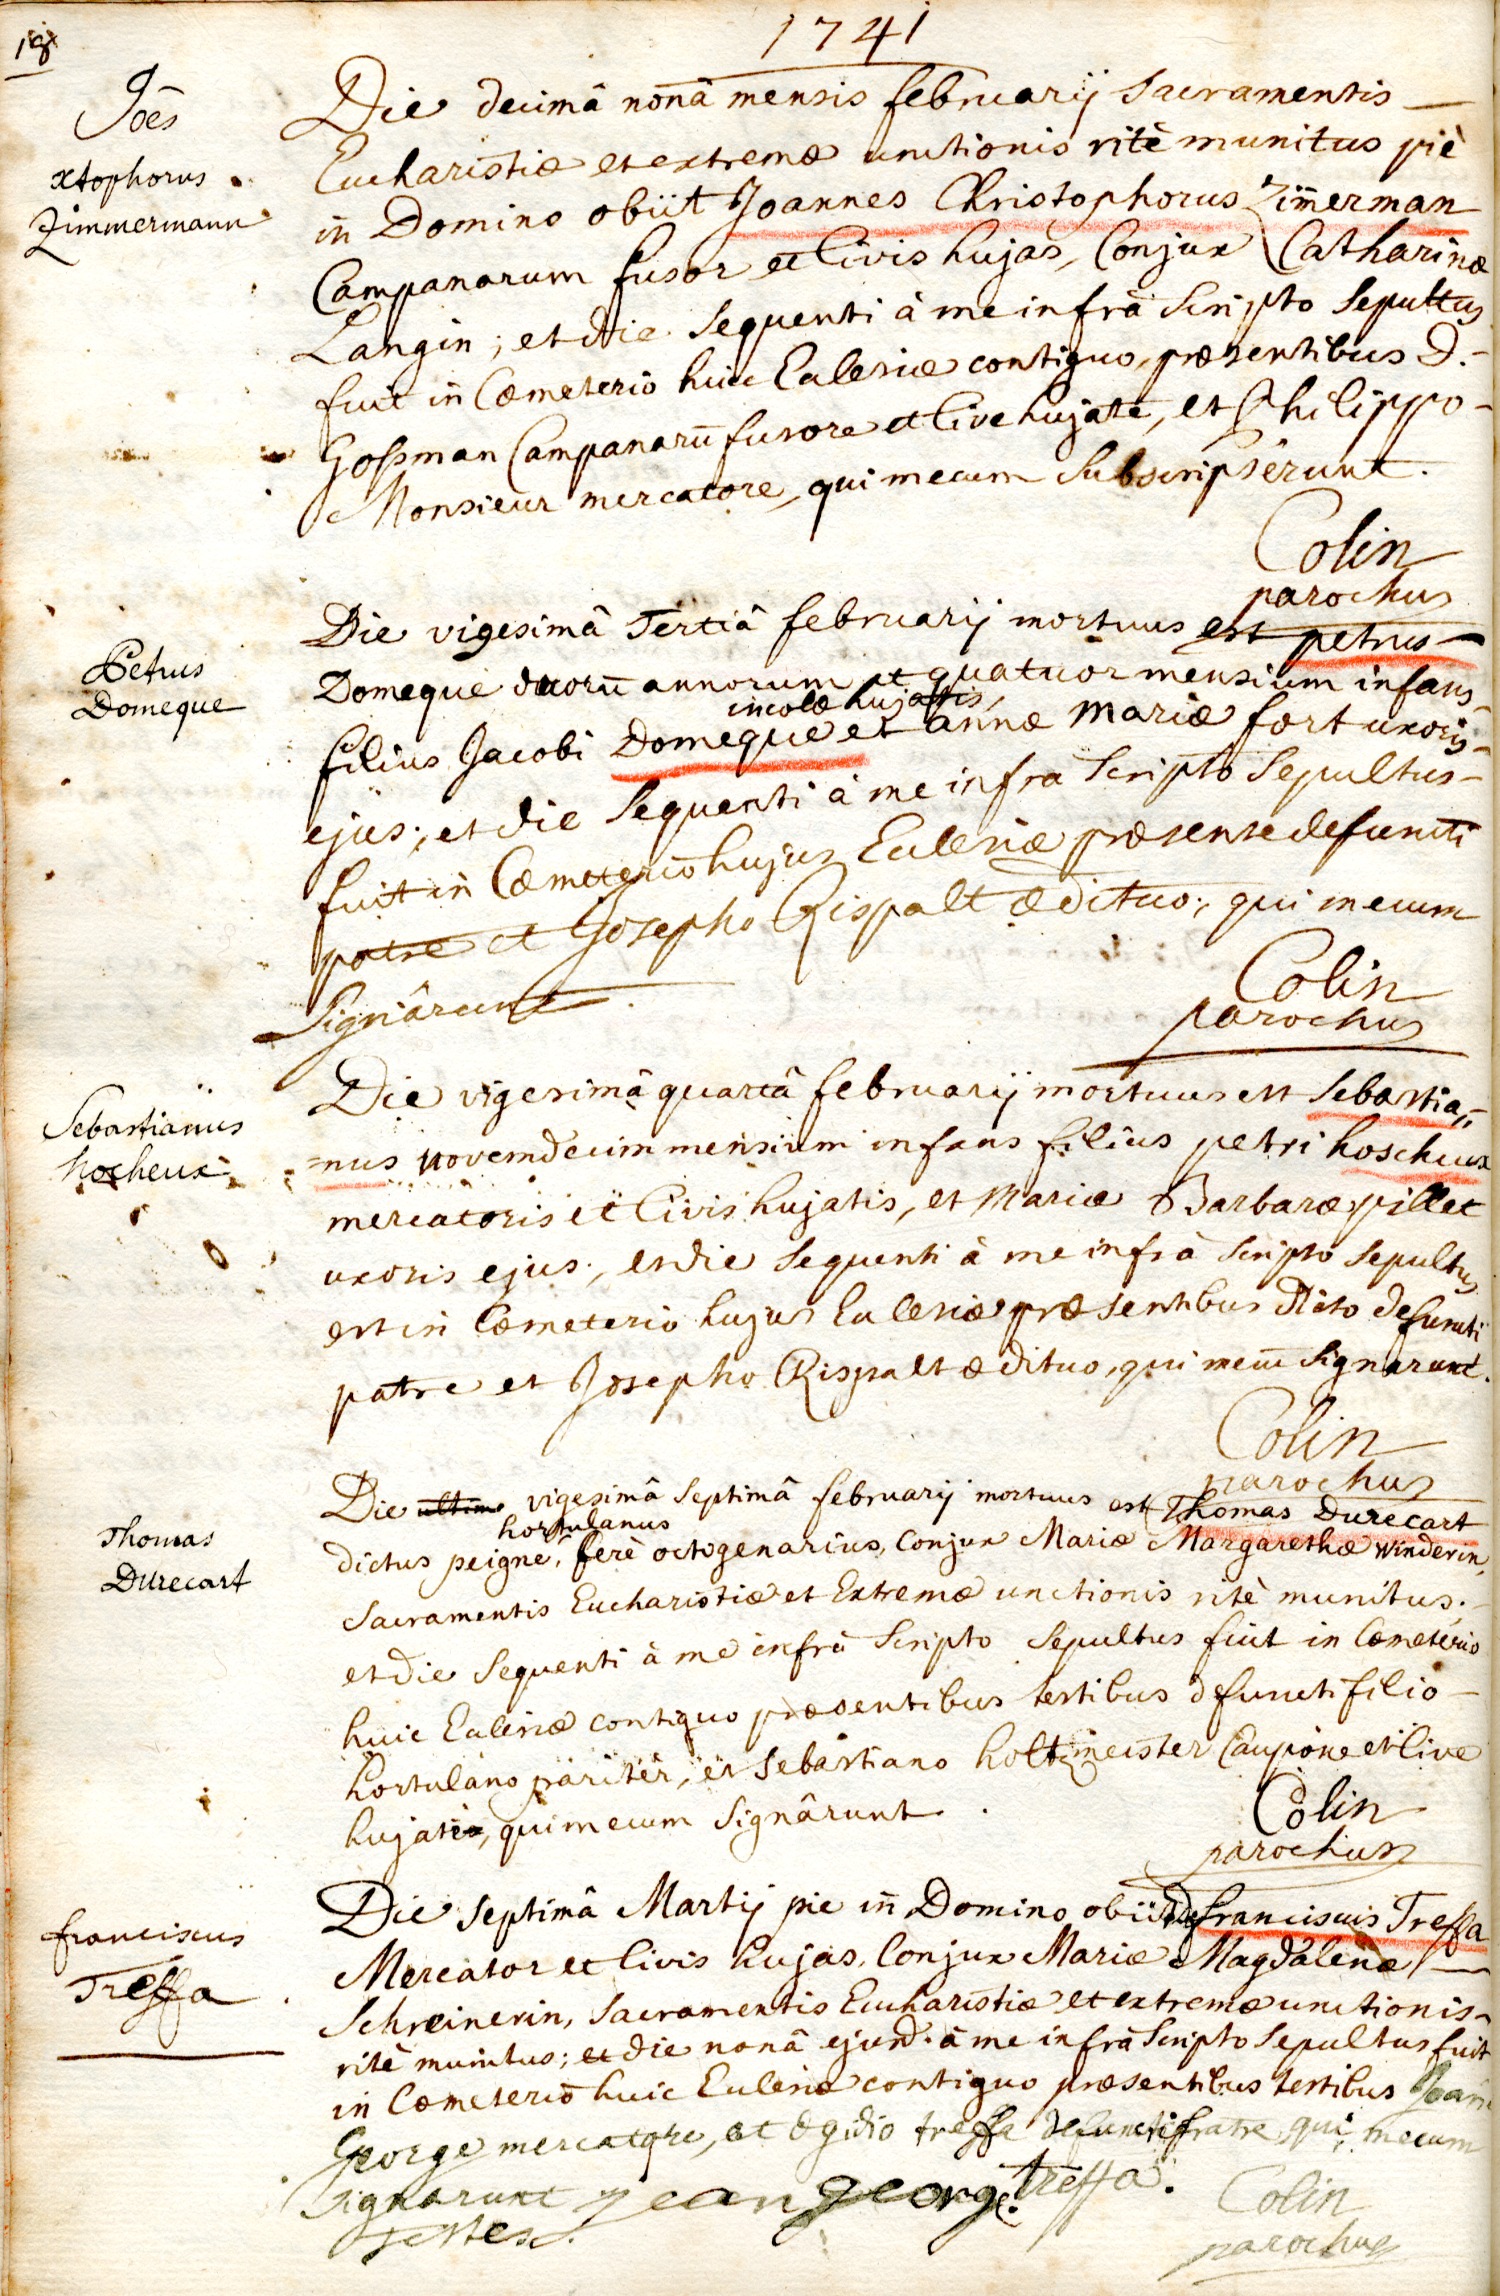 18
1741
Joēs
xtophorus
Zimmermann
Die decimâ nonâ mensis februarij Sacramentis
Eucharistiæ et extremæ unctionis ritè munitus piè
in Domino obiit Joannes Christophorus Zim̄erman
Campanarum fusor et Civis hujas, Conjux Catharinæ
Langin; et die sequenti à me infrà Scripto Sepultus
fuit in Cœmeterio huic Ecclesiæ contiguo, præsentibus D.
Gossman Campanarū fusore et Cive hujate, et Philippo
Monsieur mercatore, qui mecum Subscripserunt.
Colin
parochus
Petrus
Domeque
Die vigesimâ Tertiâ februarij mortuus est petrus
Domeque duorū annorum et quatuor mensium infans,
incolæ hujatis,
filius Jacobi Domeque et annæ Mariæ fort uxoris
ejus; et die sequenti à me infra Scripto Sepultus
fuit in Cœmeterio hujus Ecclesiæ præsente defuncti
patre et Josepho Rispalt ædituo, qui mecum
Signârunt.
Colin
parochus
Sebastianus
hocheux
Die vigesimâ quartâ februarij mortuus est Sebastia,,
=nus novemdecim mensium infans filius petri hoscheux
mercatoris et Civis hujatis, et Mariæ Barbaræ pillet
uxoris ejus; et die sequenti à me infrà Scripto Sepultus
est in Cœmeterio hujus Ecclesiæ præsentibus dicto defuncti
patre et Josepho Rispalt ædituo, qui mecū Signarunt.
Colin
parochus
Thomas
Durecart
Die ultima vigesimâ Septimâ februarij mortuus est Thomas Durecart
hortulanus
dictus peigne, ferè octogenarius, Conjux Mariæ Margarethæ Winderin,
Sacramentis Eucharistiæ et Extremæ unctionis ritè munitus;
et die Sequenti à me infrà Scripto Sepultus fuit in Cœmeterio
huic Ecclesiæ contiguo præsentibus testibus defuncti filio
hortulano pariter, et Sebastiano holtzmeister Caupone et Cive
hujate, qui mecum Signârunt.
Colin
parochus
franciscus
Treffa
Die Septimâ Martij pie in Domino obiit franciscus Treffa
Mercator et Civis hujas, Conjux Mariæ Magdalenæ
Schreinerin, Sacramentis Eucharistiæ et extremæ unctionis
ritè munitus; et die nonâ ejusd. à me infrà Scripto Sepultus fuit
in Cœmeterio huic Ecclesiæ contiguo præsentibus testibus Joan
George mercatore, et Ægidio treffa defuncti fratre, qui mecum
signarunt jean george. treffa.
testes.
Colin
parochus